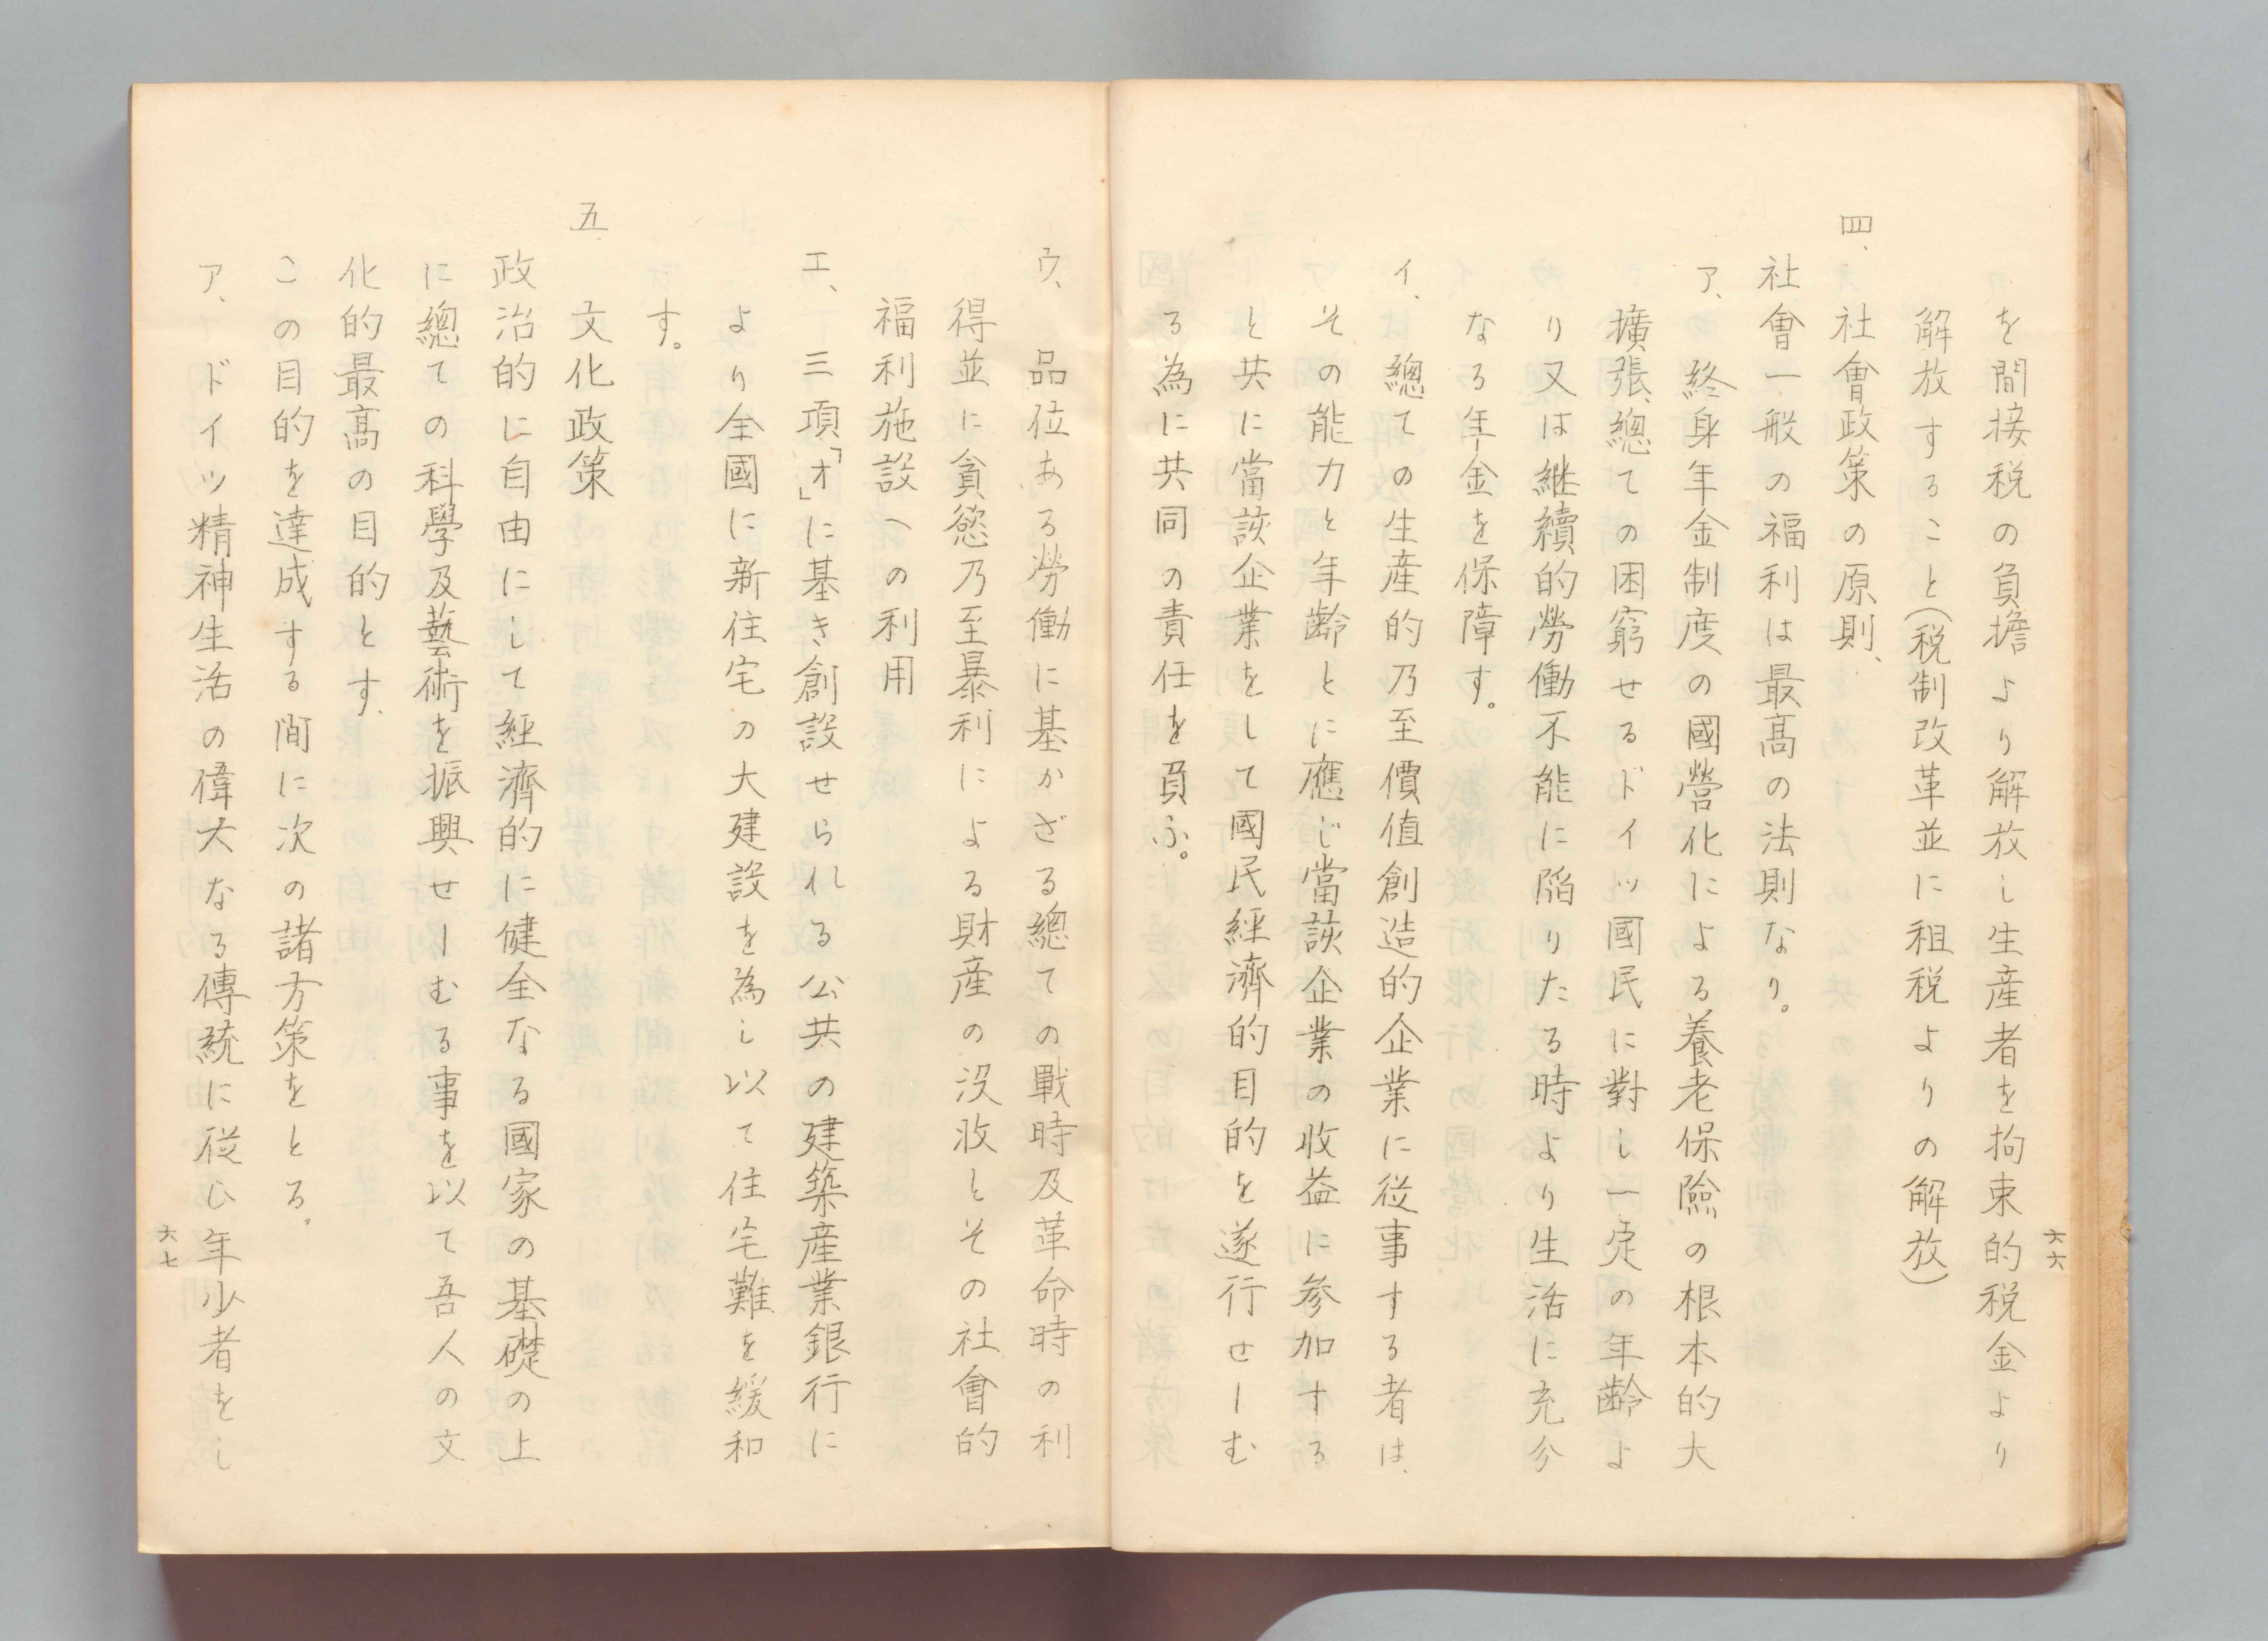 を間接税の負擔より解放し生産者を拘束的税金より
解放すること(税制改革並に租税よりの解放)
四、社會政策の原則、
社會一般の福利は最高の法則なり。
ア、終身年金制度の國營化による養老保險の根本的大
擴張、總ての困窮せるドイツ國民に對し一定の年齡よ
り又は継續的勞働不能に陥りたる時より生活に充分
なる年金を保障す。
イ、總ての生産的乃至價値創造的企業に従事する者は、
その能力と年齡とに應じ當該企業の收益に参加する
と共に當該企業をして國民経濟的目的を遂行せしむ
る為に共同の責任を負ふ。
六六
ウ、品位ある勞働に基かざる總ての戰時及革命時の利
得並に貪慾乃至暴利による財産の沒收とその社會的
福利施設への利用
エ、三項「オ」に基き創設せられる公共の建築産業銀行に
より全國に新住宅の大建設を為し以て住宅難を緩和
す。
五、文化政策
政治的に自由にして経濟的に健全なる國家の基礎の上
に總ての科學及藝術を振興せしむる事を以て吾人の文
化的最高の目的とす、
この目的を達成する間に次の諸方策をとる。
ア、ドイツ精神生活の偉大なる傳統に従ひ年少者をし
六七